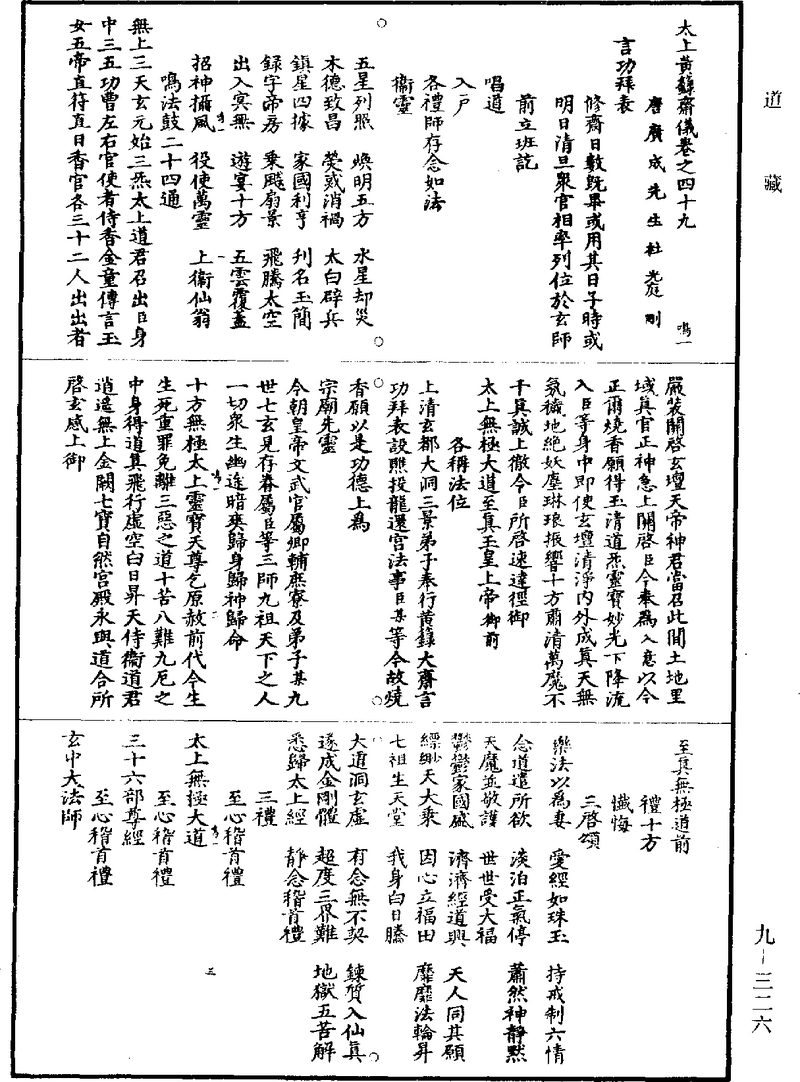 道藏
太上黃籙齋儀卷之四十九　鳴一
唐廣成先生杜光庭刪
言功拜表
修齋日數旣畢或用其日子時或
明日清旦衆官相率列位於玄師
前立班訖
唱道
入戶
各禮師存念如法
衞靈
五星列照　煥明五方　水星却災
木德致昌　熒惑消禍　太白辟兵
鎮星四據　家國利亨　刋名玉簡
録字帝房　乗飈扇景　飛騰太空
出入冥無　遊宴十方　五雲覆蓋
招神攝風　役使萬靈　上衞仙翁
鳴法鼓二十四通
無上三天玄元始三炁太上道君召出臣身
中三五功曹左右官使者侍香金童傳言玉
女五帝直符直日香官各三十二人出出者
嚴裝關啓玄壇天帝神君當召此間土地里
域真官正神急上關啓臣今奉爲入意以今
正爾燒香願得玉清道炁靈寶妙光下降流
入臣等身中即使玄壇清淨內外成真天無
氛穢地絶妖塵琳琅振響十方肅清萬魔不
干真誠上徹令臣所啓速達徑御
太上無極大道至真玉皇上帝御前
各稱法位
上清玄都大洞三景弟子奉行黃籙大齋言
功拜表設醮投龍還宫法事臣某等今故燒
香願以是功德上爲
宗廟先靈
今朝皇帝文武官屬卿輔庶寮及弟子某九
世七玄見存眷屬臣等三師九祖天下之人
一切衆生幽途暗爽歸身歸神歸命
十方無極太上靈寶天尊乞原赦前代今生
生死重罪免離三惡之道十苦八難九厄之
中身得道真飛行虛空白日昇天侍衞道君
逍遥無上金闕七寶自然宮殿永與道合所
啓玄感上御
至真無極道前
禮十方
懺悔
三啓頌
樂法以爲妻　愛經如珠玉　持戒制六情
念道遣所欲　淡泊正氣停　蕭然神靜默
天魔並敬護　世世受大福
鬱鬱家國盛　濟濟經道興　天人同其願
縹緲天大乘　因心立福田　靡靡法輪昇
七祖生天堂　我身白日騰
大道洞玄虛　有念無不契　鍊質入仙真
遂成金剛體　超度三界難　地獄五苦解
悉歸太上經　靜念稽首禮
三禮
至心稽首禮
太上無極大道
至心稽首禮
三十六部尊經
至心稽首禮
玄中大法師
三
九—三二六